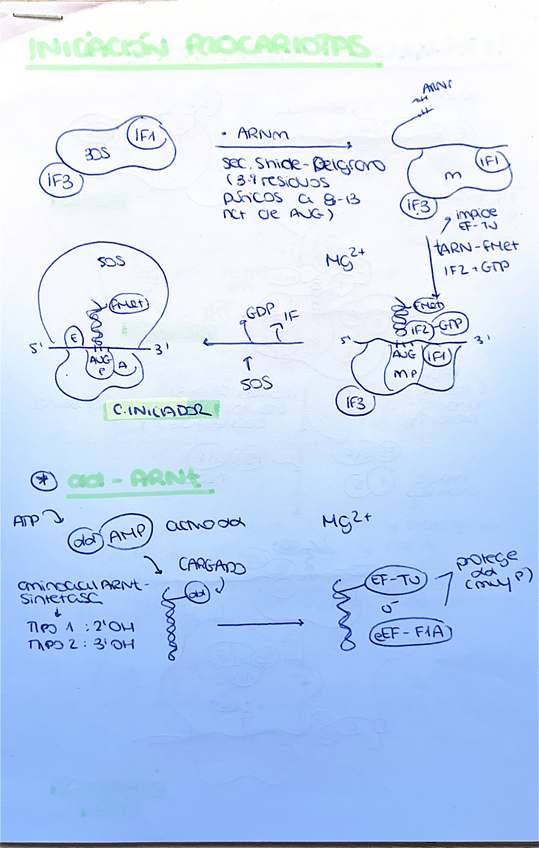 INICIACIÓN PROCARIOTAS
30S
IF1
IF3
• ARNm
sec. Shide-Delgrano
(3-9 residuos
púricos a 8-13
nct de AUG)
ARNr
m
IF1
IF3
impide
EF-TU
tARN-fMet
IF2+GTP
Mg2+
fMet
IF2
GTP
5'
3'
AUG
IF1
m P
IF3
GDP
IF
50S
50S
fMet
E
5'
3'
AUG
P
A
C.INICIADOR
* aa-ARNt
ATP
aa
AMP
Mg2+
CARGADO
aminoacilARNt-
sintetasa
TIPO 1 : 2'OH
TIPO 2 : 3'OH
aa
EF-TU
ó
eEF-F1A
protege
aa